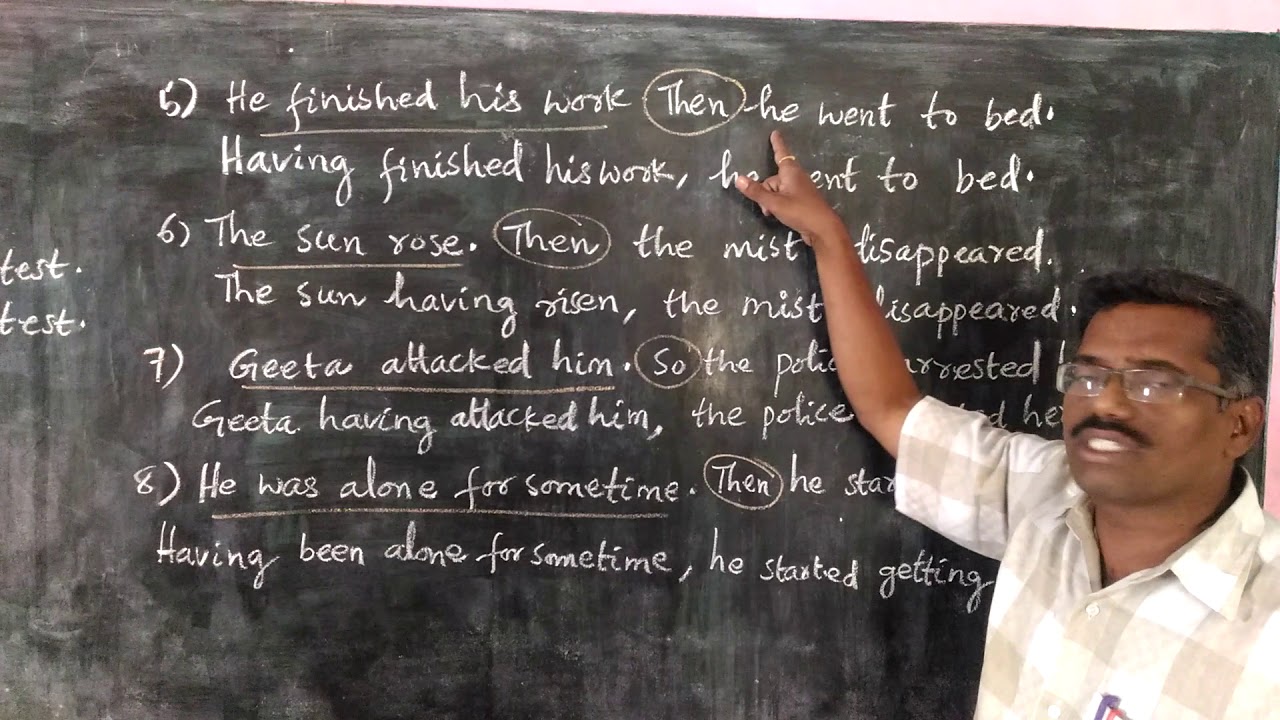 5) He finished his work Then he went to bed.
Having finished his work, he went to bed.
6) The sun rose. Then the mist disappeared.
test.
The sun having risen, the mist disappeared.
test.
7) Geeta attacked him. So the police arrested
Geeta having attacked him, the police her
8) He was alone for sometime. Then he
Having been alone for sometime, he started getting